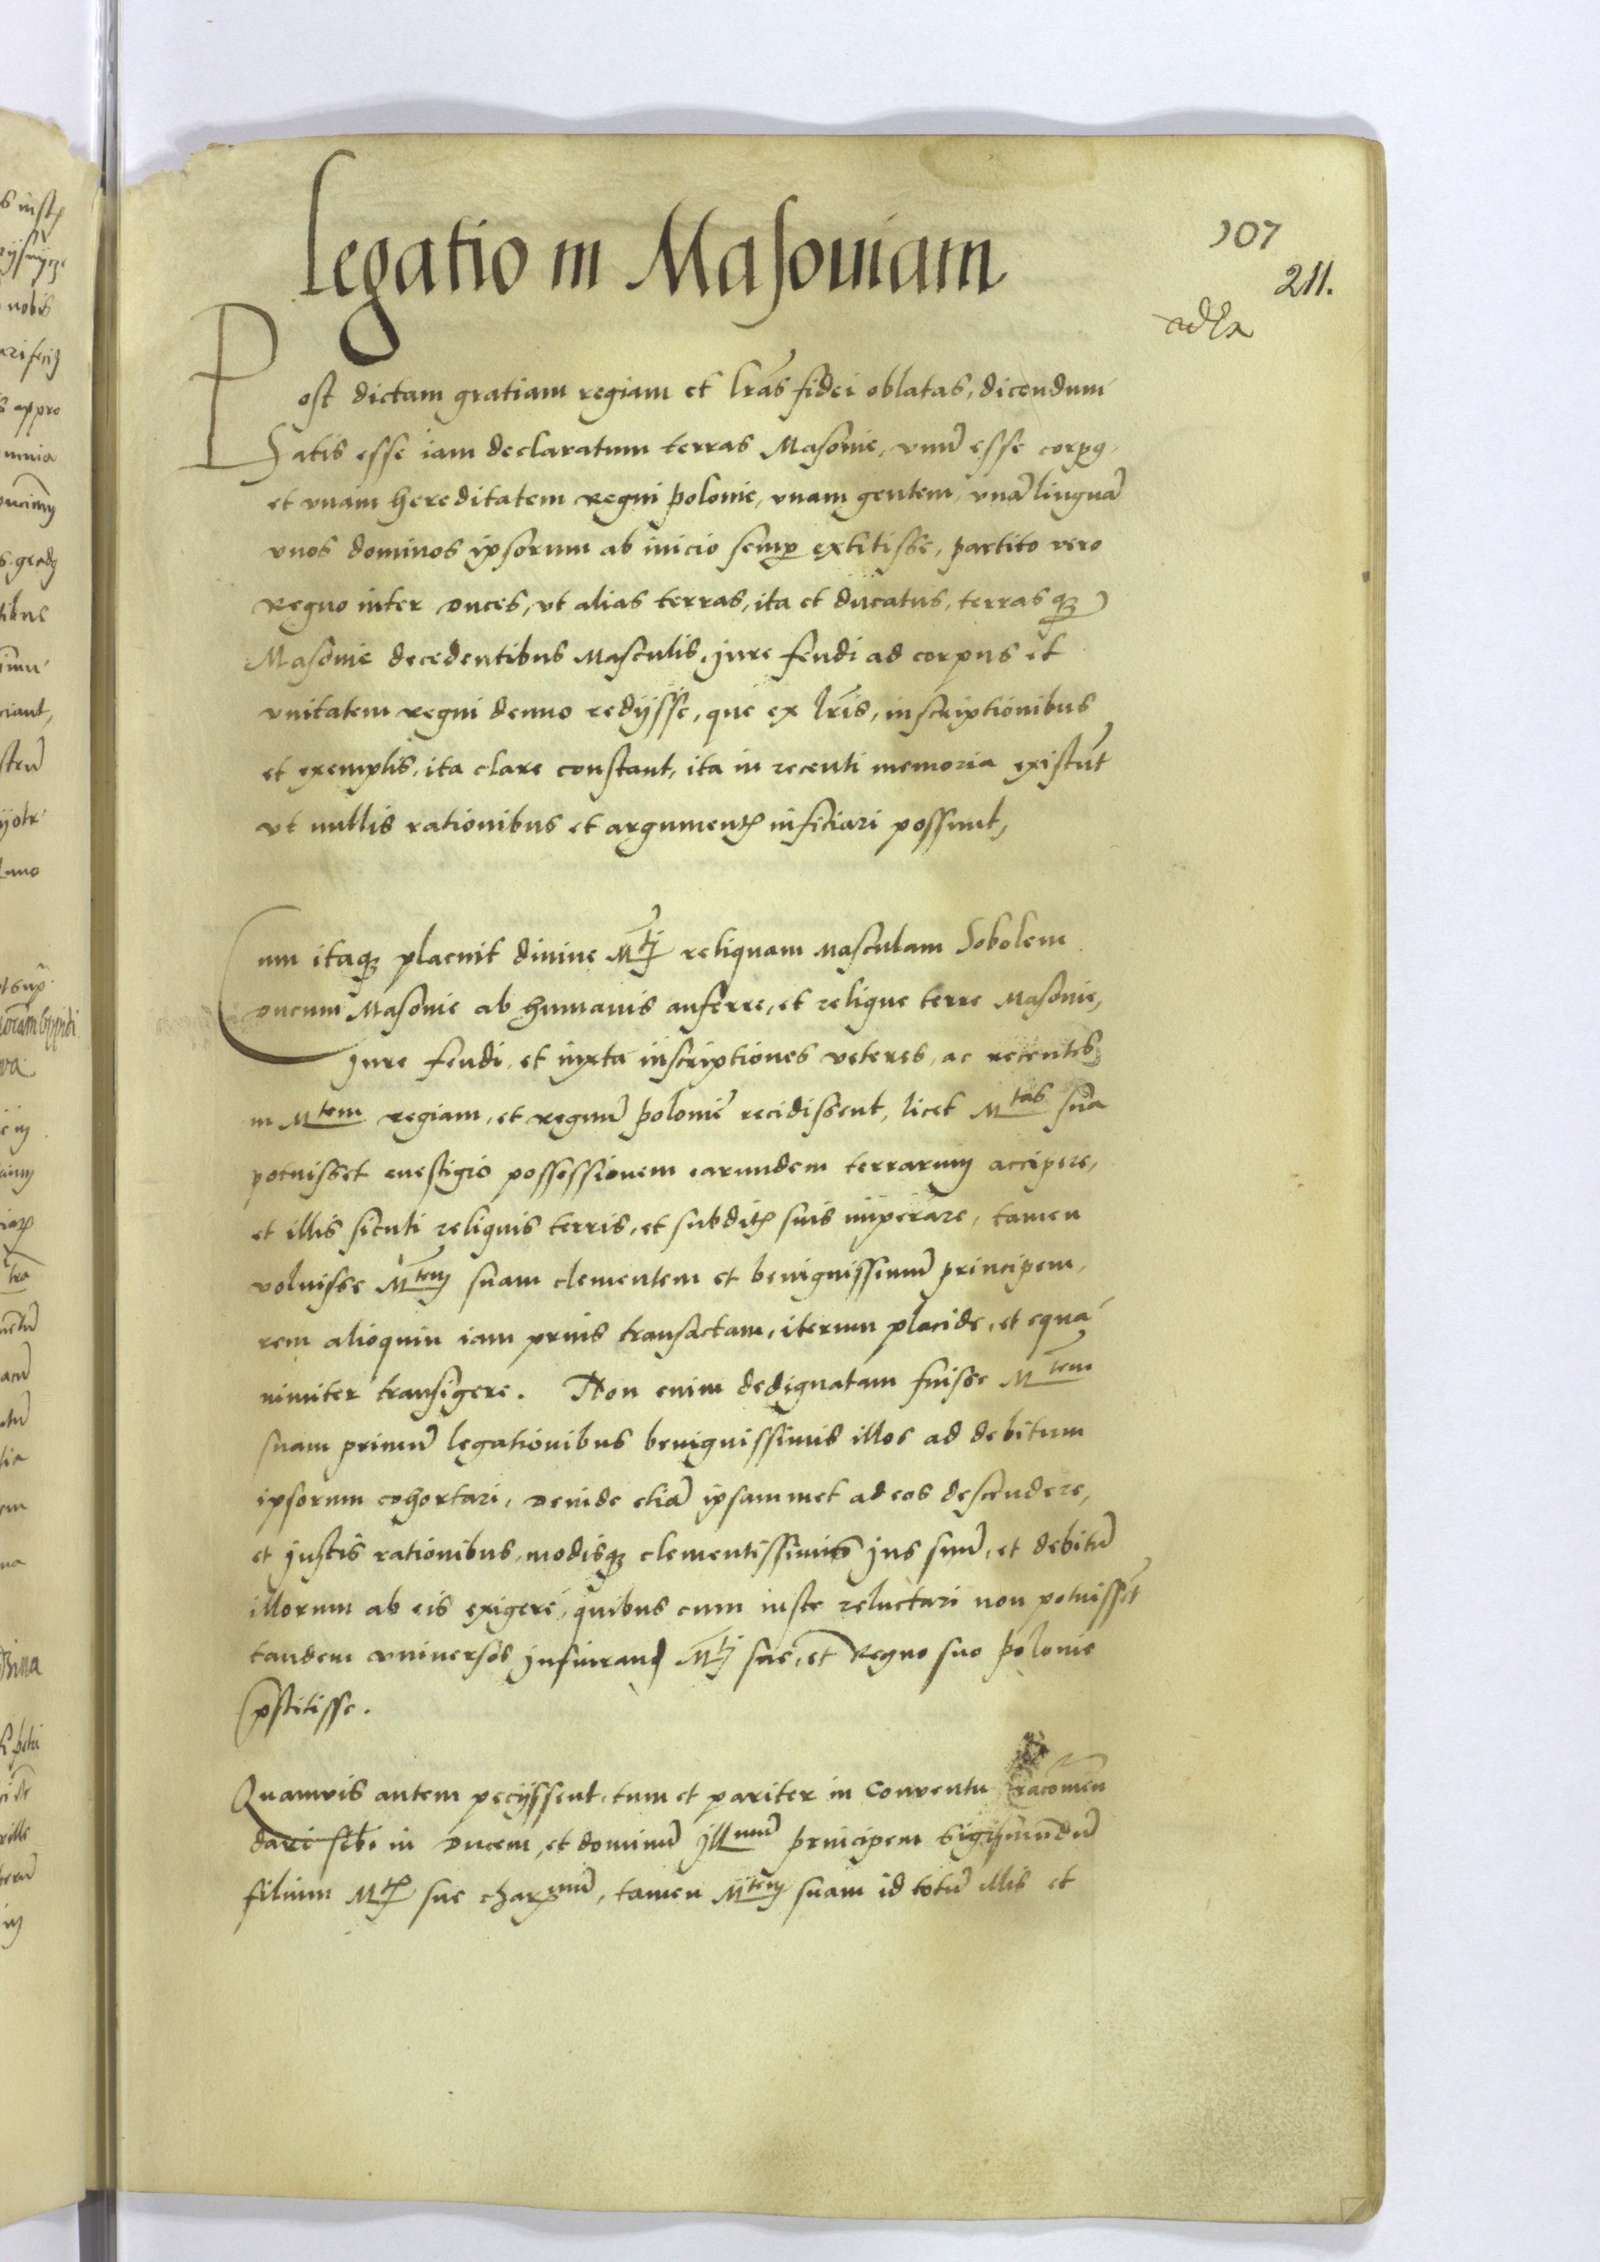 Legatio in Masouiam
107
211.
Post dictam gratiam regiam et lr̃as fidei oblatas, dicendum
Satis esse iam declaratum terras Masouie, vnũ esse corpꝯ,
et vnam hereditatem Regni polonie, vnam gentem, vnã linguã
vnos dominos ipsorum ab inicio semꝑ extitisse, partito vero
Regno inter duces, vt alias terras, ita et ducatus, terrasqꝫ
Masouie decedentibus Masculis, jure feudi ad corpus et
vnitatem regni denuo redijsse, que ex lr̃is, inscriptionibus
et exemplis, ita clare constant, ita in recenti memoria existũt
vt nullis rationibus et argumentꝭ inficiari possunt,
Cum itaqꝫ placuit diuine Mti reliquam masculam Sobolem
ducum Masouie ab humanis auferre, et relique terre Masouie,
jure feudi, et iuxta inscriptiones veteres, ac recentes
in Mtem regiam, et regnũ polonie recidissent, licet Mtas sua
potuisset euestigio possessionem earundem terrarum accipere,
et illis sicuti reliquis terris, et subditꝭ suis imperare, tamen
voluisse Mtem suam clementem et benignissimũ principem,
rem alioquin iam prius transactam, iterum placide, et equa
nimiter transigere. Non enim dedignatam fuisse Mtem
suam primũ legationibus benignissimis illos ad debitum
ipsorum cohortari, deinde etiã ipsammet ad eos descendere,
et justis rationibus, modisqꝫ clementissimis jus suũ, et debitũ
illorum ab eis exigere, quibus cum iuste reluctari non potuissẽt
tandem vniuersos jusiurand Mti sue, et Regno suo polonie
p̃stitisse.
Quamuis autem pecijssent, tum et pariter in Conuentu
dari sibi in ducem, et dominũ jllmũ principem Sigismundũ
filium Mtꝭ sue charmũ, tamen Mtem suam id totũ illis et